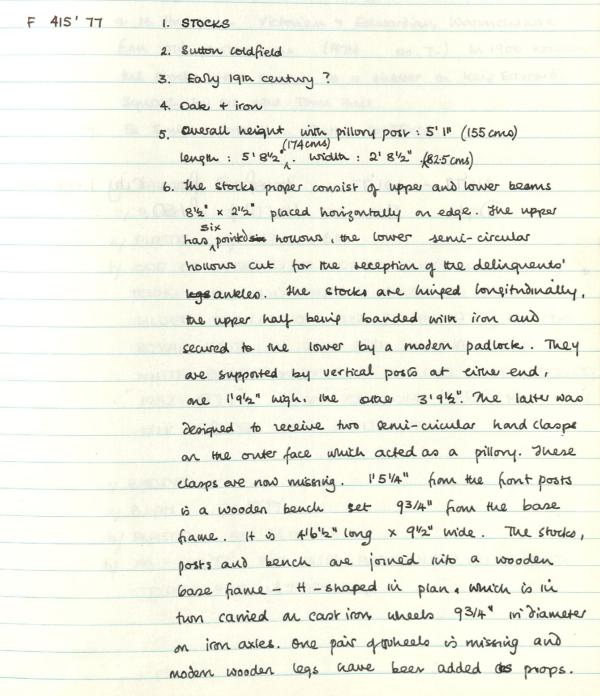 F 415' 77
1. STOCKS
2. Sutton Coldfield
3. Early 19th century ?
4. Oak + iron
5. Overall height with pillory post : 5' 1" (155 cms)
length : 5' 8½" (174 cms). width : 2' 8½" (82.5 cms)
6. The stocks proper consist of upper and lower beams
8½" x 2½" placed horizontally on edge. The upper
has six pointed hollows, the lower semi-circular
hollows cut for the reception of the delinquents'
legs ankles. The stocks are hinged longitudinally,
the upper half being banded with iron and
secured to the lower by a modern padlock. They
are supported by vertical posts at either end,
one 1'9½" high, the other 3'9½". The latter was
designed to receive two semi-circular hand clasps
on the outer face which acted as a pillory. These
clasps are now missing. 1'5¼" from the front posts
is a wooden bench set 9¾" from the base
frame. It is 4'6½" long x 9½" wide. The stocks,
posts and bench are joined into a wooden
base frame - H-shaped in plan, which is in
turn carried on cast iron wheels 9¾" in diameter
on iron axles. One pair of wheels is missing and
modern wooden legs have been added as props.